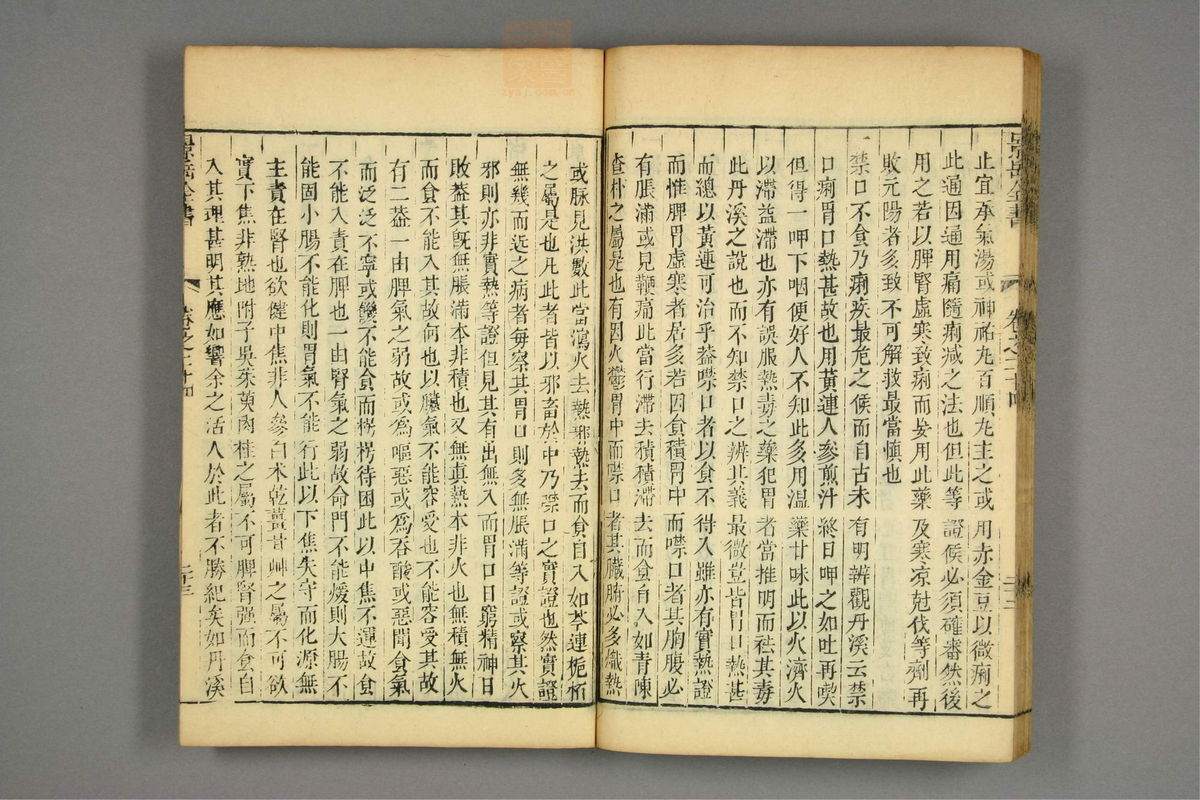 止宜承氣湯或神祐丸百順丸主之或用赤金豆以微痢之
此通因通用痛隨痢減之法也但此等證候必須確審然後
用之若以脾腎虛寒致痢而妄用此藥及寒凉尅伐等劑再
敗元陽者多致不可解救最當慎也
一禁口不食乃痢疾最危之候而自古未有明辨觀丹溪云禁
口痢胃口熱甚故也用黃連人參煎汁終日呷之如吐再喫
但得一呷下咽便好人不知此多用温藥甘味此以火濟火
以滯益滯也亦有誤服熱毒之藥犯胃者當推明而祛其毒
此丹溪之說也而不知禁口之辨其義最微豈皆胃口熱甚
而總以黃連可治乎葢噤口者以食不得入雖亦有實熱證
而惟脾胃虛寒者居多若因食積胃中而噤口者其胸腹必
有脹滿或見鞕痛此當行滯去積積滯去而食自入如青陳
查朴之屬是也有因火鬱胃中而噤口者其臟腑必多熾熱
或脉見洪數此當瀉火去熱邪熱去而食自入如芩連梔栢
之屬是也凡此者皆以邪畜於中乃禁口之實證也然實證
無幾而近之病者每察其胃口則多無脹滿等證或察其火
邪則亦非實熱等證但見其有出無入而胃口日窮精神日
敗葢其旣無脹滿本非積也又無眞熱本非火也無積無火
而食不能入其故何也以臟氣不能容受也不能容受其故
有二葢一由脾氣之弱故或為嘔惡或為吞酸或惡聞食氣
而泛泛不寧或饑不能食而楞楞待困此以中焦不運故食
不能入責在脾也一由腎氣之弱故命門不能煖則大腸不
能固小腸不能化則胃氣不能行此以下焦失守而化源無
主責在腎也欲健中焦非人參白朮乾薑甘艸之屬不可欲
實下焦非熟地附子吳茱萸肉桂之屬不可脾腎强而食自
入其理甚明其應如響余之活人於此者不勝紀矣如丹溪
景岳全書
卷之二十四
二十三